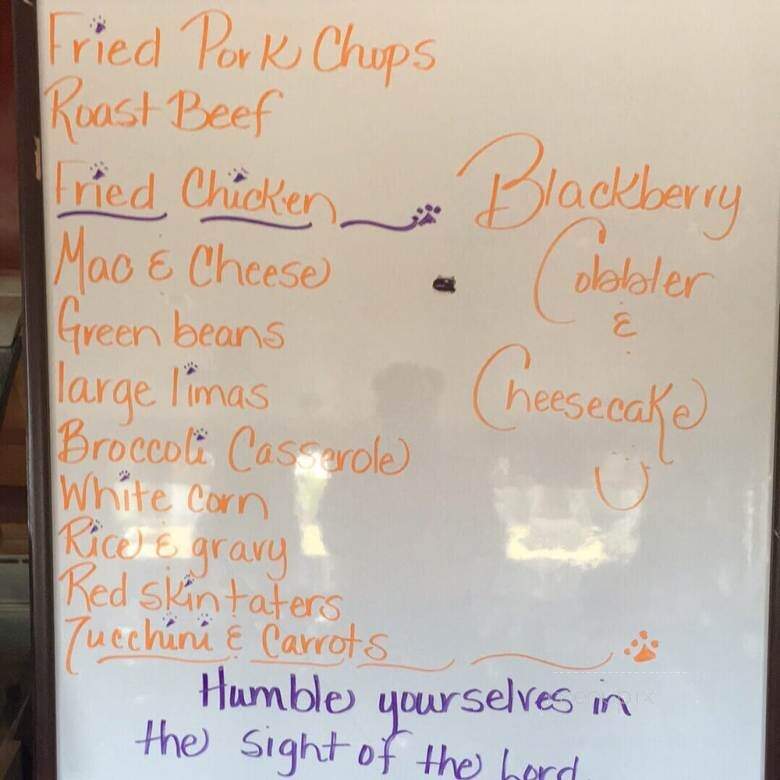 Fried Pork Chops
Roast Beef
Fried Chicken
Mac & Cheese
Green beans
large limas
Broccoli Casserole
White Corn
Rice & gravy
Red skin taters
Zucchini & Carrots
Blackberry
Cobbler
&
Cheesecake
Humble yourselves in
the sight of the Lord